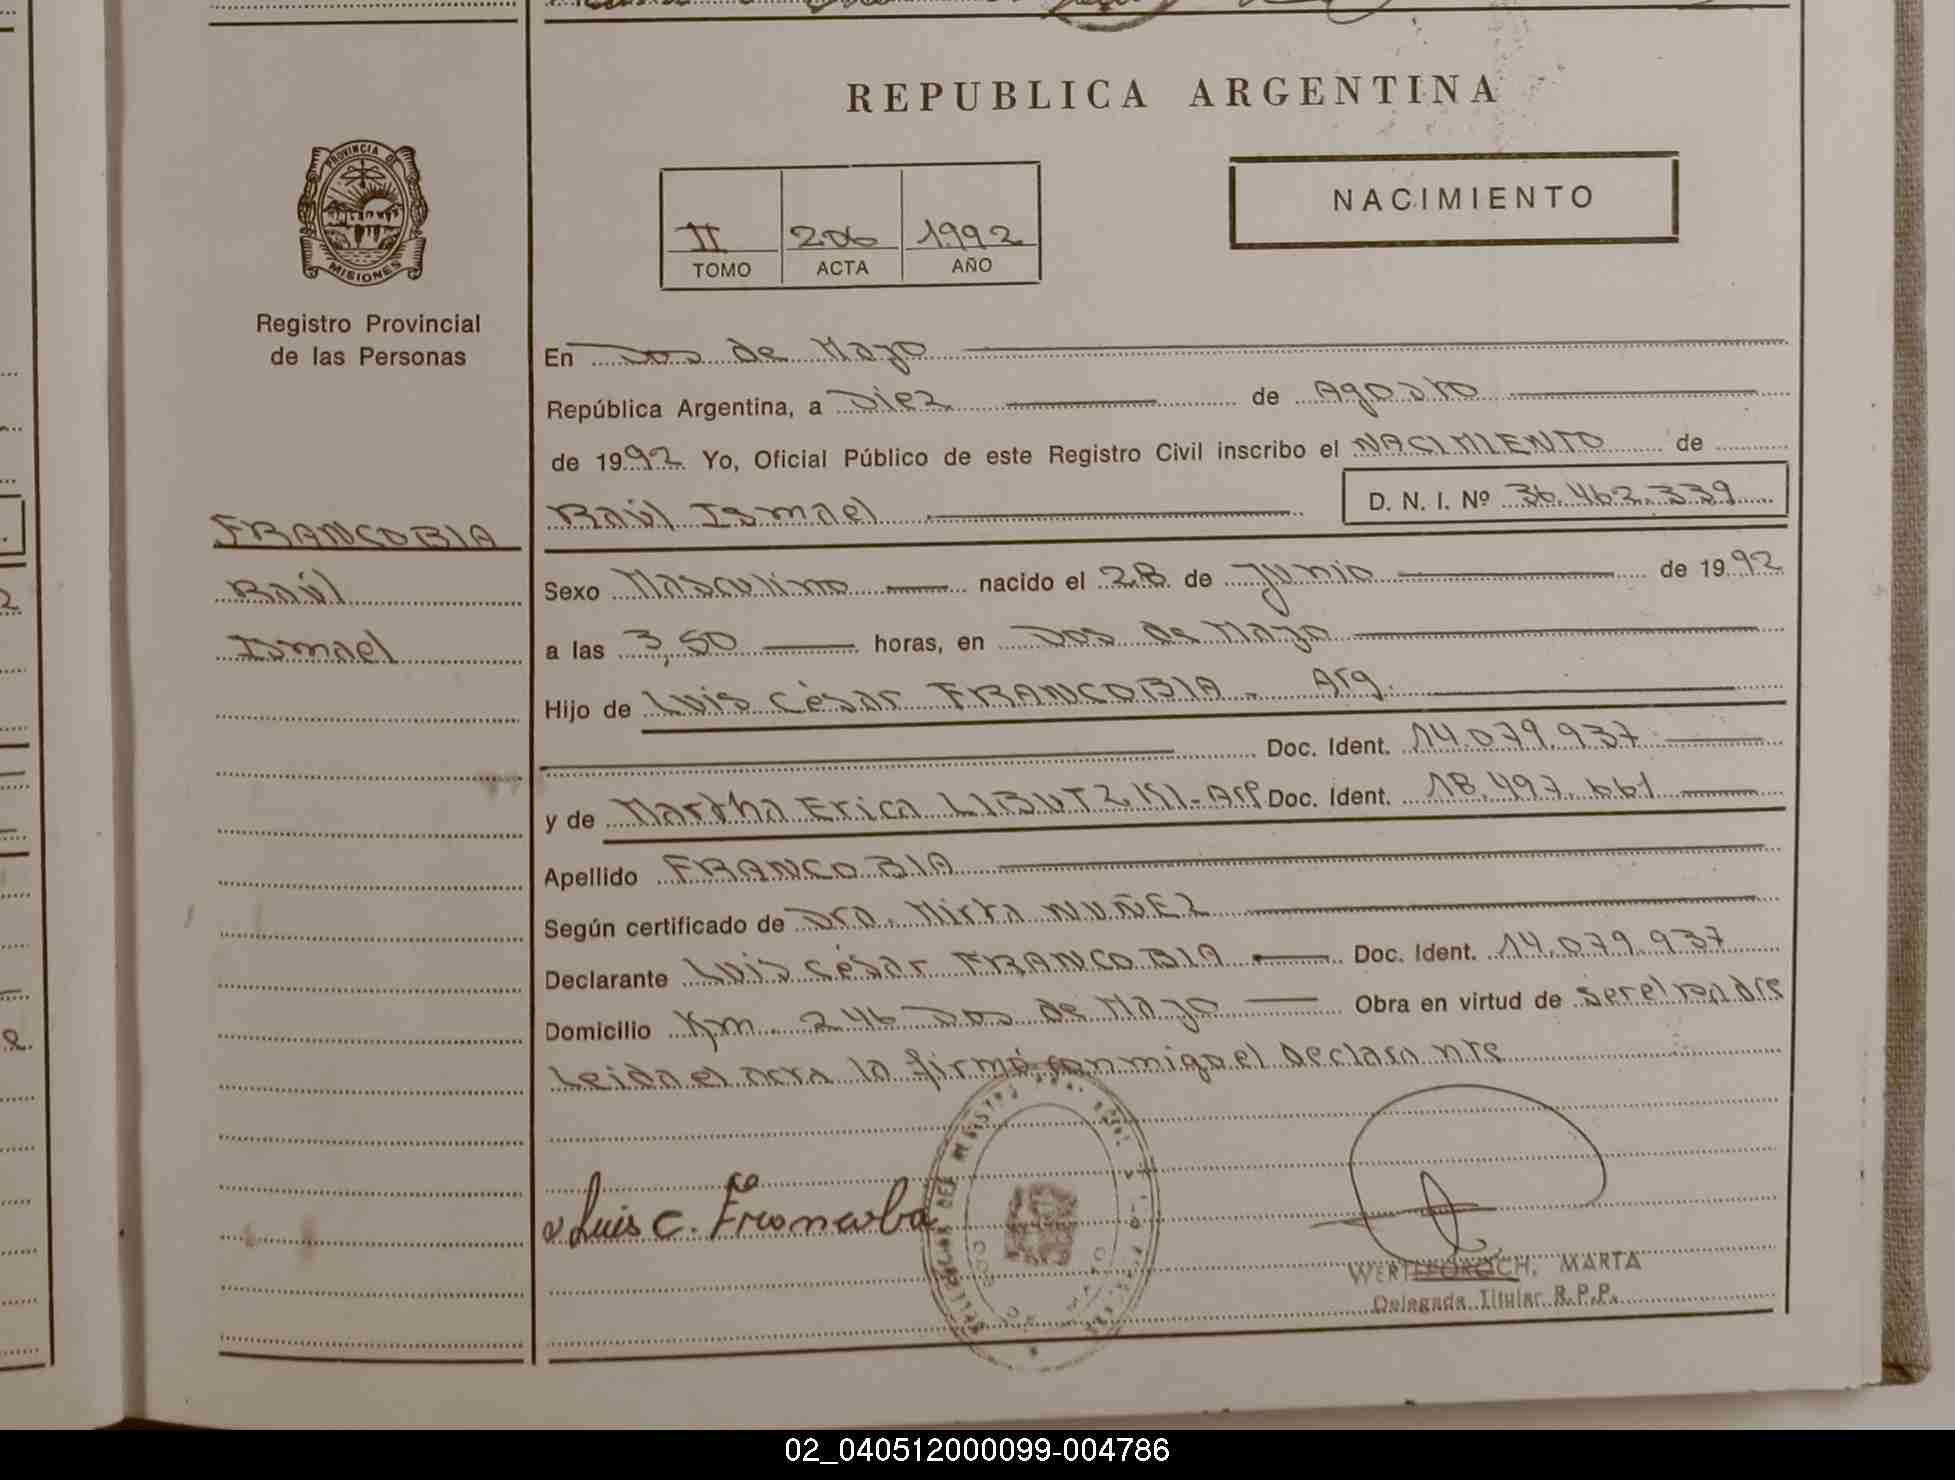 REPUBLICA ARGENTINA
PROVINCIA DE
MISIONES
Registro Provincial
de las Personas
II 206 1992
TOMO ACTA AÑO
NACIMIENTO
En Dos de Mayo
República Argentina, a Diez de Agosto
de 1992 Yo, Oficial Público de este Registro Civil inscribo el NACIMIENTO de
Raúl Ismael D. N. I. Nº 36.462.339
FRANCOBIA
Raúl
Ismael
Sexo Masculino nacido el 28 de Junio de 1992
a las 3,50 horas, en Dos de Mayo
Hijo de Luis César FRANCOBIA - Arg.
Doc. Ident. 14.079.937
y de Martha Erica Doc. Ident. 18.497.661
Apellido FRANCOBIA
Según certificado de Dra. Mirta NUÑEZ
Declarante Luis César FRANCOBIA Doc. Ident. 14.079.937
Domicilio Km. 246 Dos de Mayo Obra en virtud de ser el padre
Leida el acta la firmó conmigo el declarante
Luis C. Francobia
MARTA
Delegada Titular R.P.P.
02_040512000099-004786